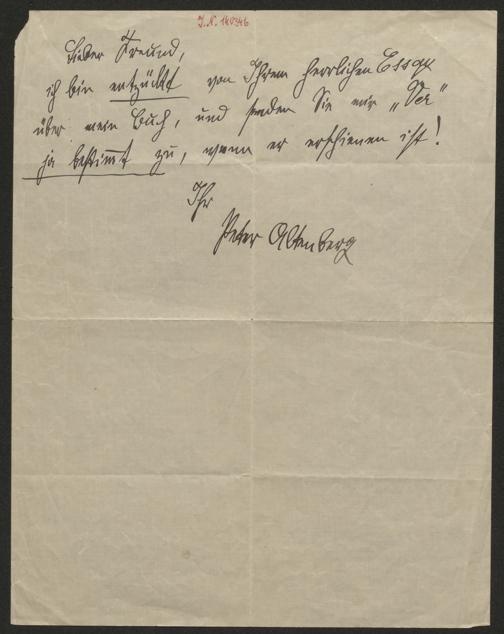 J. N. 160546
Lieber Freund,
ich bin entzückt von Ihrem herrlichen Essay
über mein Buch, und senden Sie mir
ja bestimmt zu, wenn er erschienen ist!
Ihr
Peter Altenberg